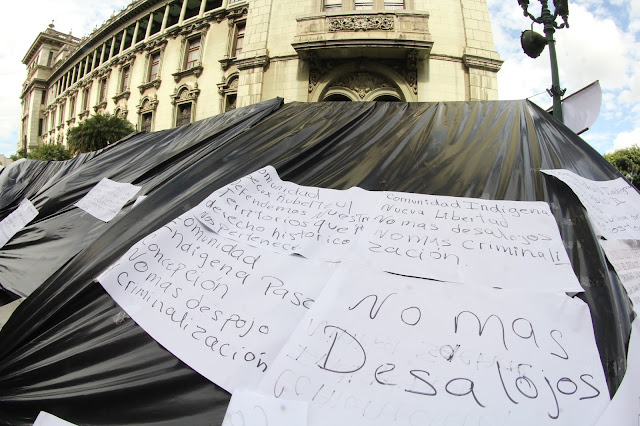 omunidad
Defendemos Nuestra
territorios que
derecho historico
Pertenece
Comunidad Indigena
Nueva Libertad
No mas desalojos
NO MAS Criminali
zación.
Comunidad
Indigena Paso
Concepción
No mas despojo
Criminalización
No mas
Desalojos